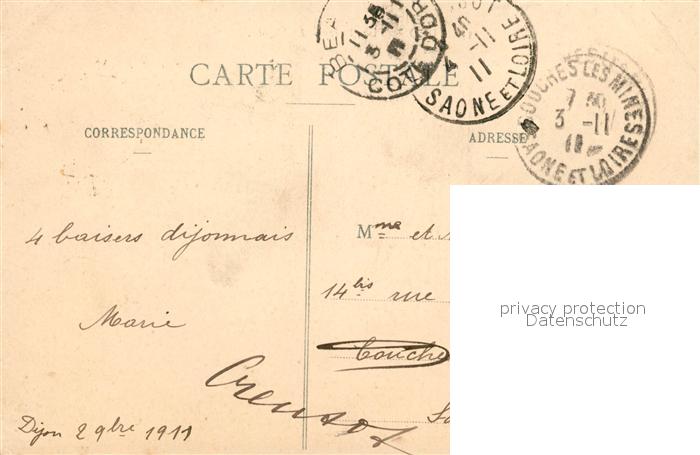 CARTE POSTALE
CORRESPONDANCE
ADRESSE
4 baisers dijonnais
Marie
Dijon 2 9bre 1911
Mme et
14bis rue
Couche
Creusot
BEA
11 30
3 -11
11
COTE D'OR
OT
45
-11
11
SAONE ET LOIRE
COUCHES LES MINES
7 30
3 -11
11
SAONE ET LOIRE
privacy protection
Datenschutz